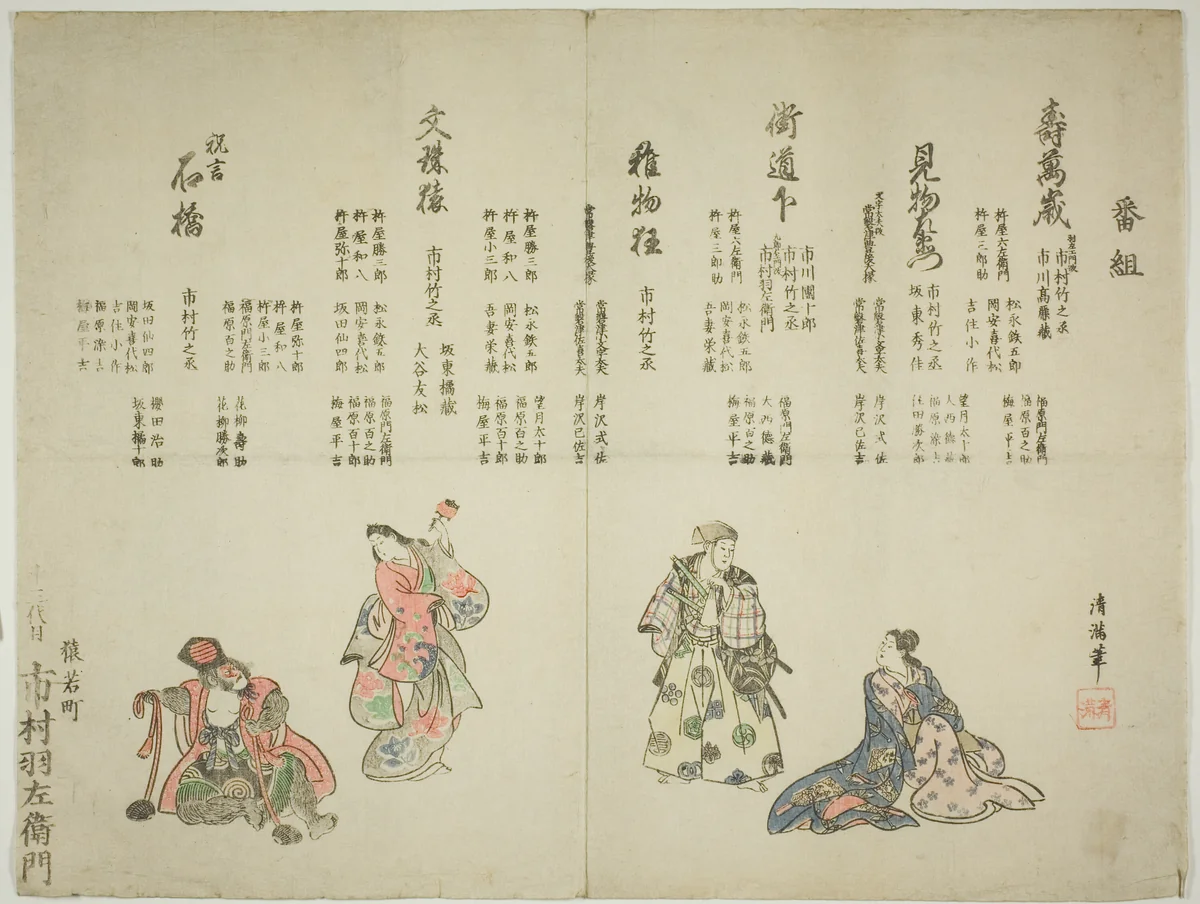 番組
壽萬歳
市村竹之丞
市川高麗藏
杵屋六左衛門
杵屋三郎助
松永鉄五郎
岡安喜代松
吉住小作
福原門左衛門
福原百之助
梅屋平吉
望月太十郎
見物左衛門
市村竹之丞
坂東秀作
常磐津豊後大掾
常磐津小文字太夫
岸沢式佐
岸沢已佐吉
街道下
市川團十郎
市村竹之丞
市村羽左衛門
杵屋六左衛門
杵屋三郎助
松永鉄五郎
岡安喜代松
吾妻栄藏
福原門左衛門
大西徳藏
福原百之助
梅屋平吉
雅物狂
市村竹之丞
岸沢式佐
岸沢已佐吉
杵屋勝三郎
杵屋和八
杵屋小三郎
松永鉄五郎
岡安喜代松
吾妻栄藏
望月太十郎
福原百之助
福原百十郎
梅屋平吉
文珠猿
市村竹之丞
坂東橘藏
大谷友松
杵屋勝三郎
杵屋和八
杵屋弥十郎
松永鉄五郎
岡安喜代松
坂田仙四郎
福原門左衛門
福原百之助
福原百十郎
梅屋平吉
祝言
石橋
市村竹之丞
杵屋弥十郎
杵屋和八
杵屋小三郎
福原門左衛門
福原百之助
花柳壽助
花柳勝次郎
坂田仙四郎
岡安喜代松
吉住小作
櫻田治助
坂東橘十郎
清満筆
清満
猿若町
十二代目
市村羽左衛門